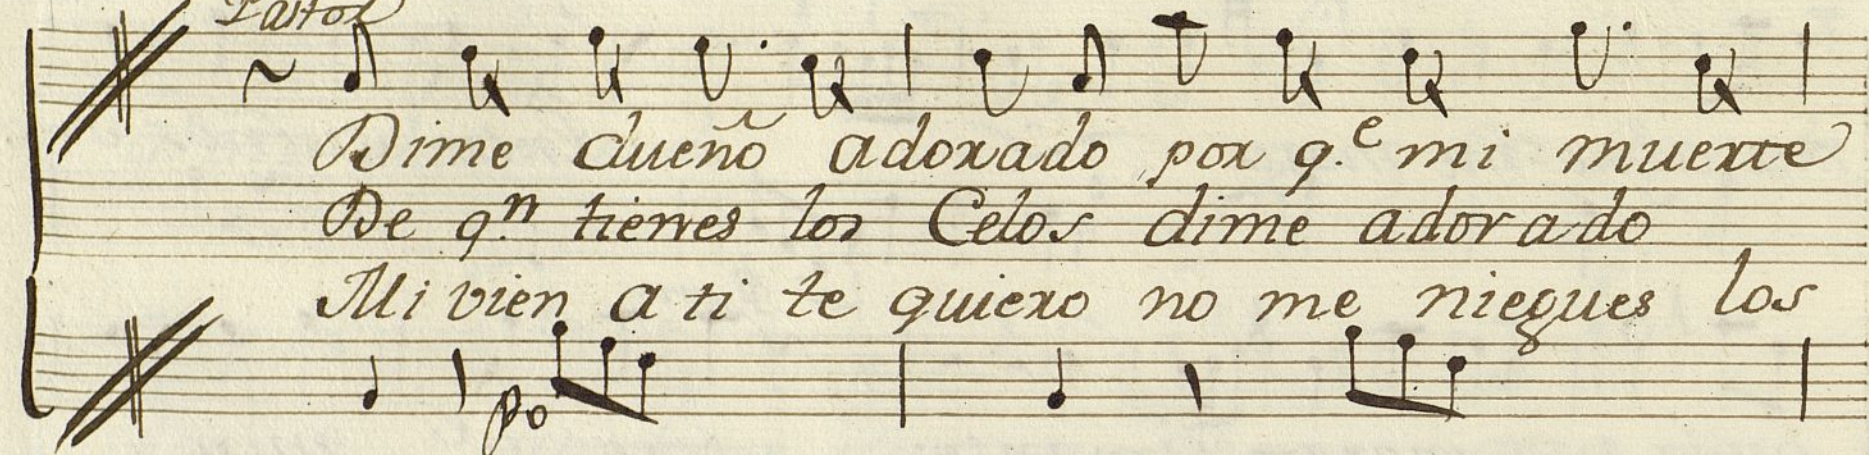 Pastor
Dime dueño adorado por q.e mi muerte
De q.n tienes los Celos dime adorado
Mi vien a ti te quiero no me niegues los
po